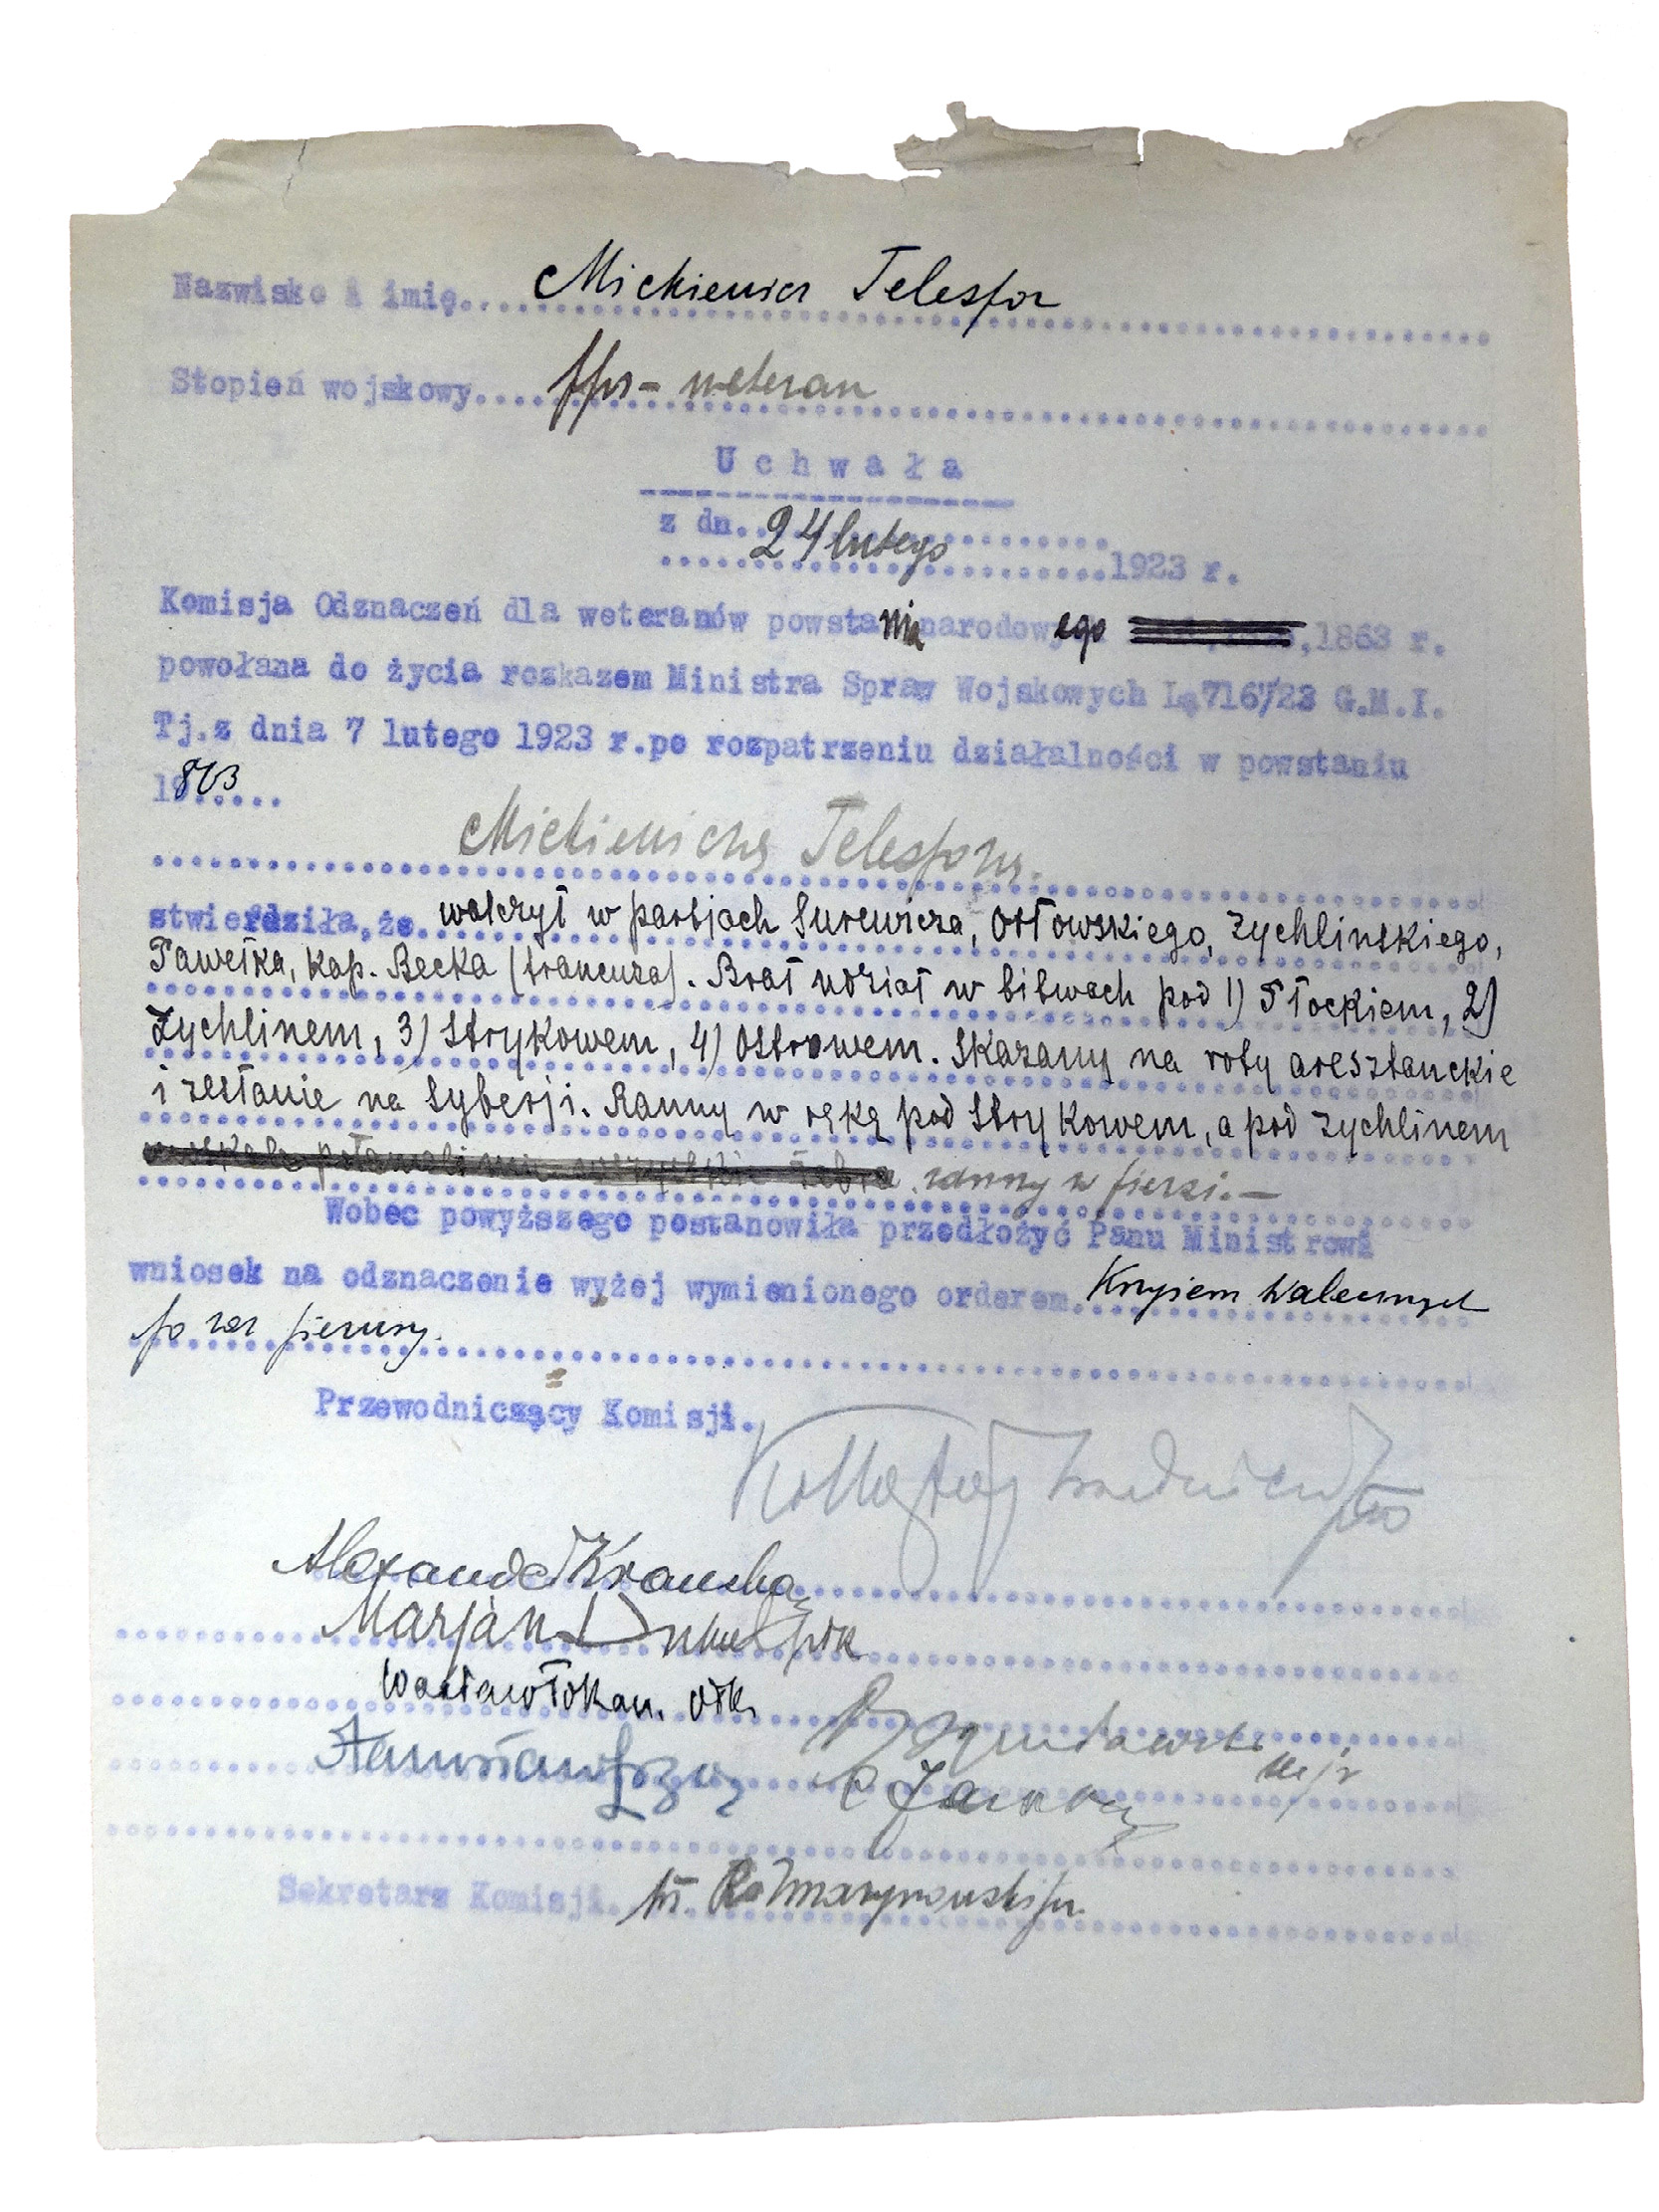 Nazwisko i imię.... Mickiewicz Telesfor
Stopień wojskowy.... ppor - weteran
Uchwała
z dn. 24 lutego
1923 r.
Komisja Odznaczeń dla weteranów powstania narodowego 1863 r.
powołana do życia rozkazem Ministra Spraw Wojskowych L.716/23 G.M.I.
Tj.z dnia 7 lutego 1923 r.po rozpatrzeniu działalności w powstaniu
1863
Mickiewicza Telesfora.
stwierdziła, że walczył w partjach Surewicza, Orłowskiego, Żychlińskiego,
Pawełka, kap. Becka (francuza). Brał udział w bitwach pod 1) Płockiem, 2)
Żychlinem, 3) Strykowem, 4) Ostrowem. Skazany na roty aresztanckie
i zesłanie na Syberji. Ranny w rękę pod Strykowem, a pod Żychlinem
ranny w piersi. —
Wobec powyższego postanowiła przedłożyć Panu Ministrowi
wniosek na odznaczenie wyżej wymienionego orderem Krzyżem Walecznych
po raz pierwszy.
Przewodniczący Komisji.
Alexander Kraushar
Marjan Dubiecki
Wacław Tokarz. płk.
mjr
Sekretarz Komisji.